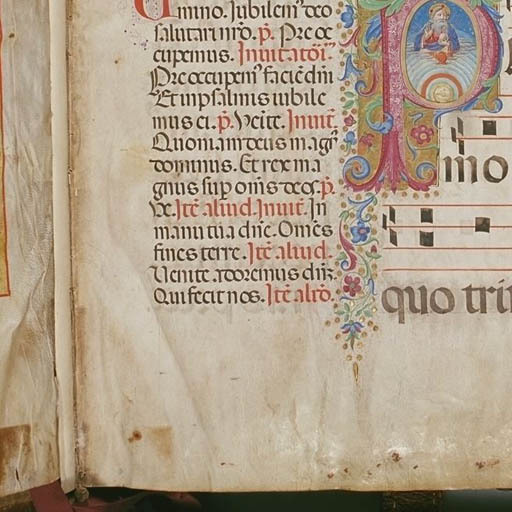 mino. Jubilem' deo
salutari nr̄o. p̄. Pre oc
cupemus. Inuitatoī.
Pre occupem' faciē dn̄i
Et in psalmis iubile
mus ei. p̄. Veīte. Inuit̄.
Quoniam deus mag'
dominus. Et rex ma
gnus sup om̄s deos. p̄.
Ve. Itē aliud. Inuit̄. In
manu tua dn̄e. Om̄es
fines terre. Itē aliud.
Venite adoremus dn̄z
Qui fecit nos. Itē alr̄o.
mo
quo tri